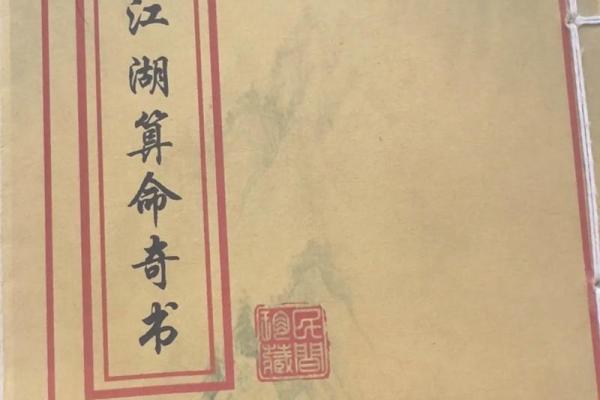 江湖算命奇书
民间
珍藏